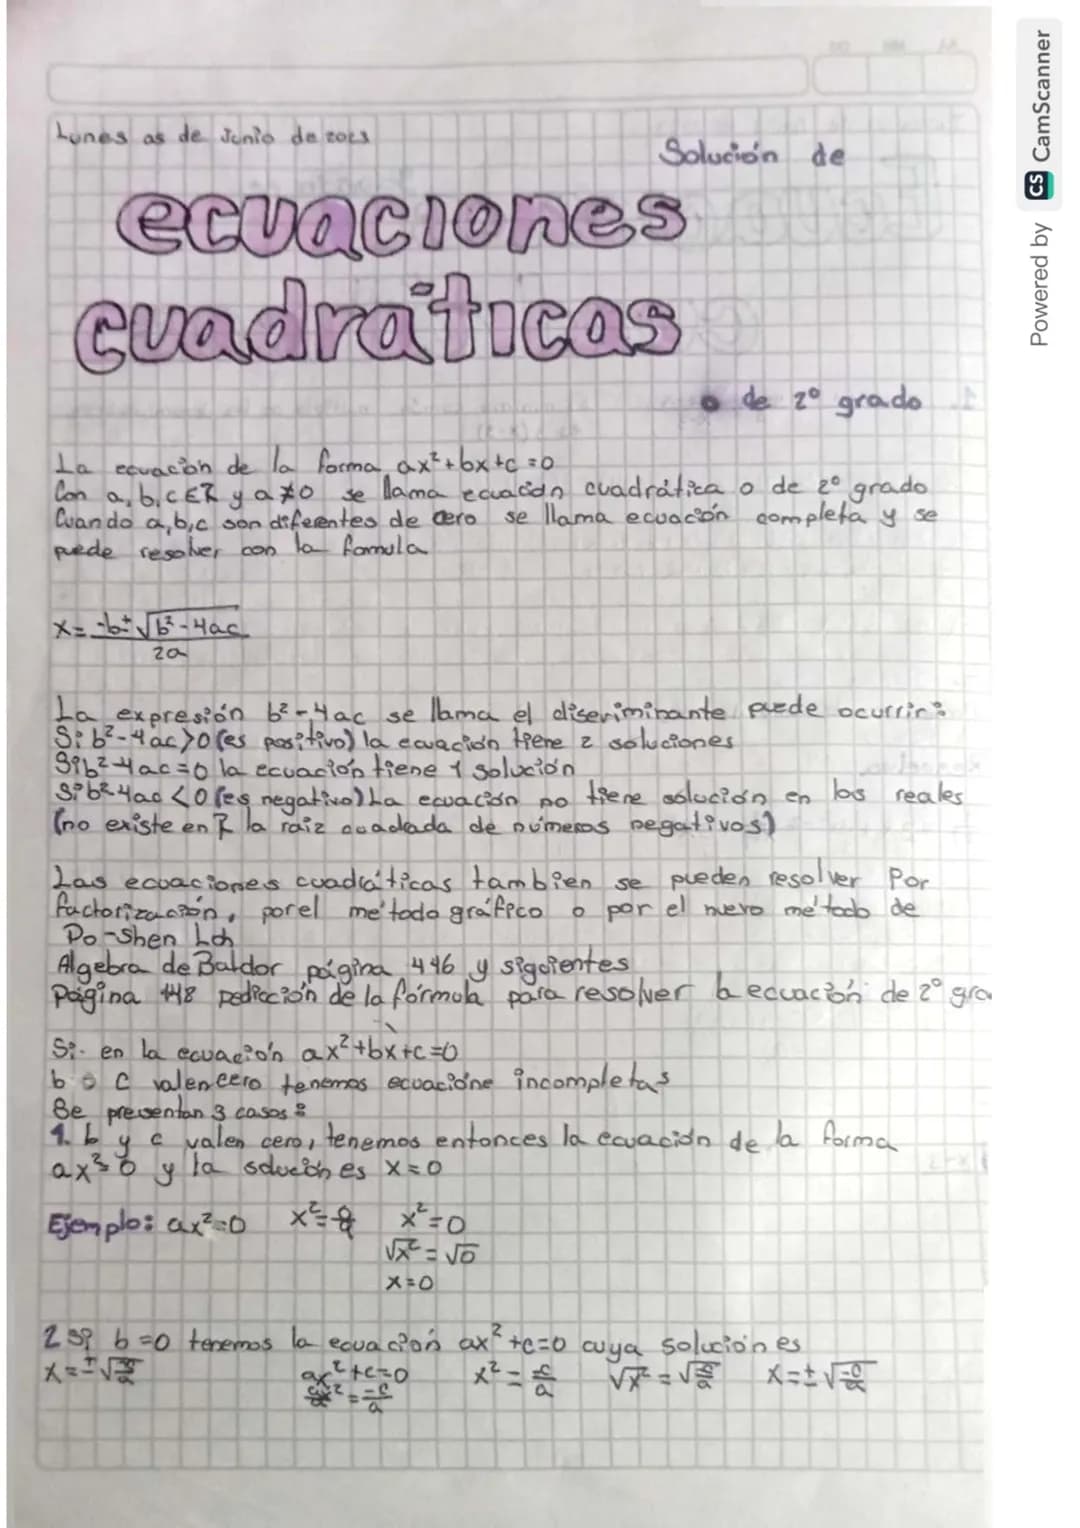 Lunes 05 de Junio de 2023
Solución de
ecuaciones
cuadráticas
• de 2º grado
La ecuación de la forma ax²+bx+c=0
Con a,b,c∈R y a≠0 se llama ecuación cuadrática o de 2º grado
Cuando a,b,c son diferentes de cero se llama ecuación completa y se
puede resolver con la formula
x= -b±√b²-4ac
2a
La expresión b²-4ac se llama el discriminante puede ocurrir:
Si b²-4ac>0 (es positivo) la ecuación tiene 2 soluciones
Si b²-4ac=0 la ecuación tiene 1 solución
Si b²-4ac<0 (es negativo) La ecuación no tiene solución en los reales
(no existe en R la raiz cuadada de números negativos)
Las ecuaciones cuadráticas tambien se pueden resolver Por
factorización, por el método gráfico o por el nuevo método de
Po-Shen Loh
Algebra de Baldor página 446 y sigoientes
Página 448 pediccion de la fórmula para resolver la ecuación de 2º gra
Si en la ecuación ax²+bx+c=0
b o c valen cero tenemos ecuacióne incompletas
Se presentan 3 casos:
1. b y c valen cero, tenemos entonces la ecuación de la forma
ax²=0 y la solución es x=0
Ejemplo: ax²=0 x²=0/a x²=0
√x²=√0
x=0
2 Si b=0 tenemos la ecuación ax²+c=0 cuya solución es
x=±√-c/a ax²+c=0 x²=-c/a √x²=√-c/a x=±√-c/a
ax²=-c/a
Powered by CS CamScanner